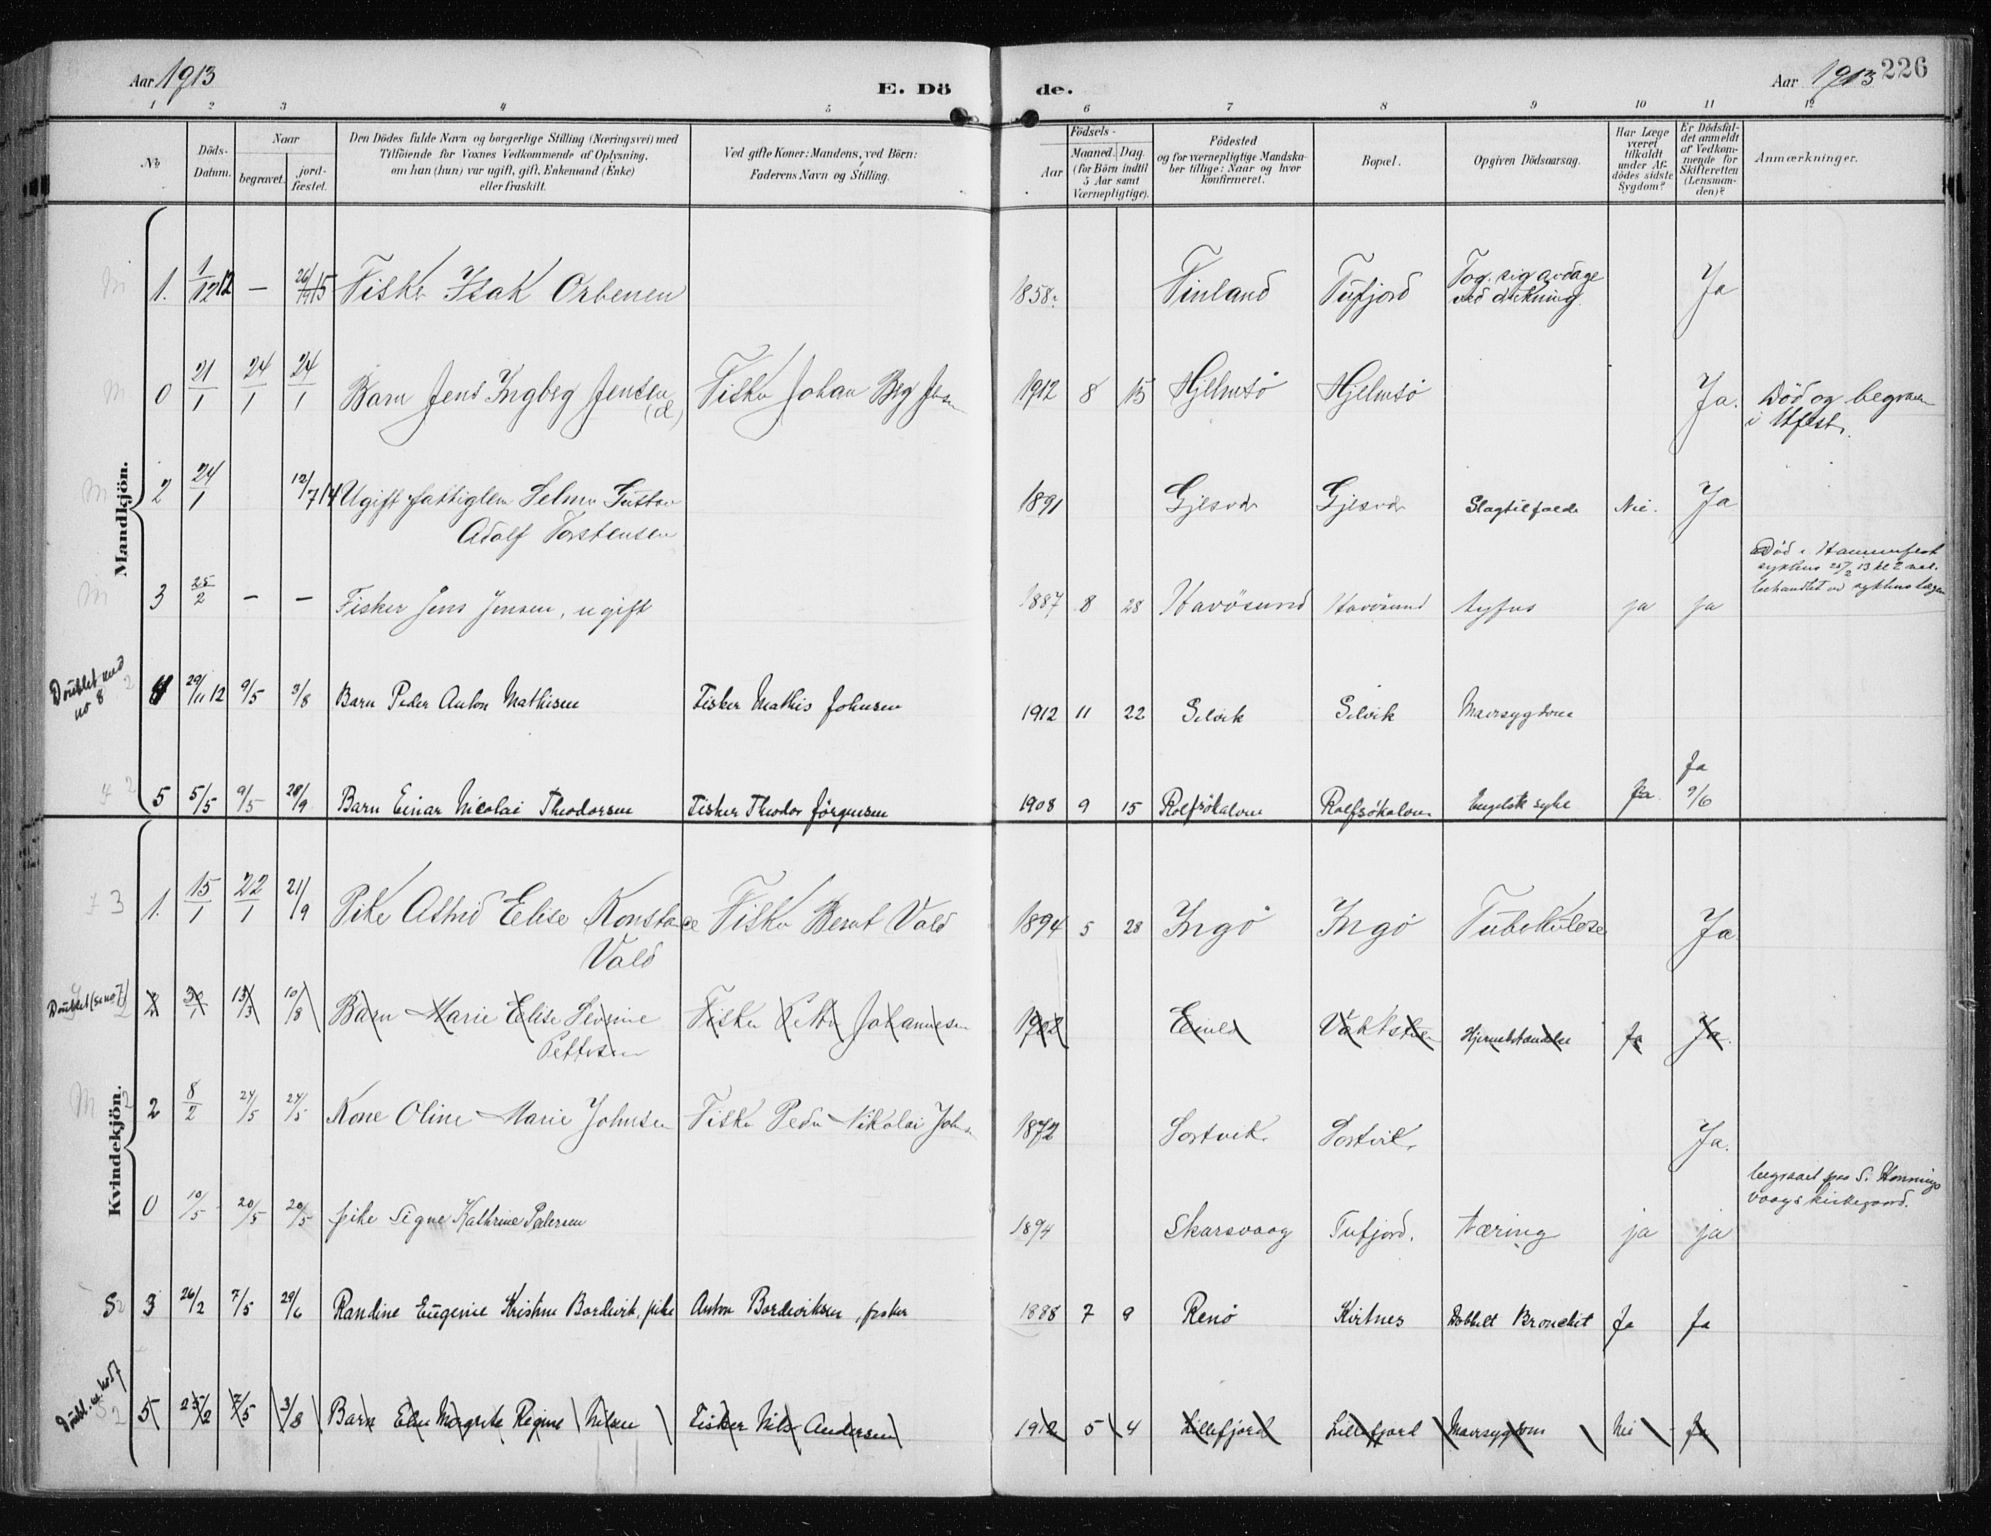 Aar 1913
E. Dö
de.
Aar 1913
226
1 2 3 4 5 6 7 8 9 10 11 12
No
Döds-
Datum.
Naar
begravet.
jord-
fæstet.
Den Dödes fulde Navn og borgerlige Stilling (Næringsvei) med
Tilföiende for Voxnes Vedkommende af Oplysning,
om han (hun) var ugift, gift, Enkemand (Enke)
eller fraskilt.
Ved gifte Koner: Mandens, ved Börn:
Faderens Navn og Stilling.
Födsels-
Aar
Maaned. Dag.
(for Börn indtil
5 Aar samt
Værnepligtige).
Födested
og for værnepligtige Mandska-
ber tillige: Naar og hvor
konfirmeret.
Bopæl.
Opgiven Dödsaarsag.
Har Læge
været
tilkaldt
under Af-
dödes sidste
Sygdom?
Er Dödsfal-
det anmeldt
af Vedkom-
mende for
Skifteretten
(Lensman-
den)?
Anmærkninger.
Mandkjön.
1. 1/12 12 — 26/9 15 Fisker Isak Orbenen 1858 Finland Tufjord Tog sig avdage Ja
ved drukning.
0 21/1 24/1 24/1 Barn Jens Ingberg Jensen (d) Fisker Johan Berg Jensen 1912 8 15 Hjelmsø Hjelmsø Ja. Død og begraven
i Hfest.
2 24/1 12/7 14 Ugift fattiglem Selmer Gustav 1891 Gjesvær Gjesvær Slagtilfælde Nei. Ja
Adolf Torstensen
Død i Hammerfest
sykehus 25/2 13 kl 2
behandlet av sykehuslægen
3 25/2 — — Fisker Jens Jensen, ugift 1887 8 28 Havösund Havösund tyfus ja ja
Doublet med
no 8
4 29/11 12 9/5 3/8 Barn Peder Anton Mathisen Fisker Mathis Johnsen 1912 11 22 Selvik Selvik Mavesygdom
5 5/5 9/5 28/9 Barn Einar Nicolai Theodorsen Fisker Theodor Jörgensen 1908 9 15 Rolfsökalven Rolfsökalven Engelsk syke Ja Ja
9/6
Kvindekjön.
1. 15/1 22/1 21/9 Pike Astrid Elise Konstance Fisker Berat Vald 1894 5 28 Ingø Ingø Tuberkulose Ja.
Vald
Doublet (se no 7)
2 30/1 13/3 10/8 Barn Marie Elise Sevrine Fisker Petter Johannesen 1912 Hjernebetændelse Ja Ja.
Pettersen
2 8/2 24/5 24/5 Kone Oline Marie Johnsen Fisker Peder Nikolai Johnsen 1872 Sortvik Sortvik. Ja.
0 10/5 20/5 20/5 pike Signe Kathrine Pedersen 1894 Skarsvaag Tufjord. tæring ja ja
begravet paa S. Honnings
vaags kirkegaard.
3 26/2 7/5 29/6 Randine Eugenie Kristine Bordevik, pike Anton Bordeviksen, fisker 1888 7 9 Renö Kirtnes Dobbelt Bronchit Ja Ja
Doubl. m. no 57
5 25/2 7/5 3/8 Barn Else Margrete Regine Nilsen Fisker Nils Andersen 1912 5 4 Lillefjord Lillefjord Mavesygdom Nei Ja